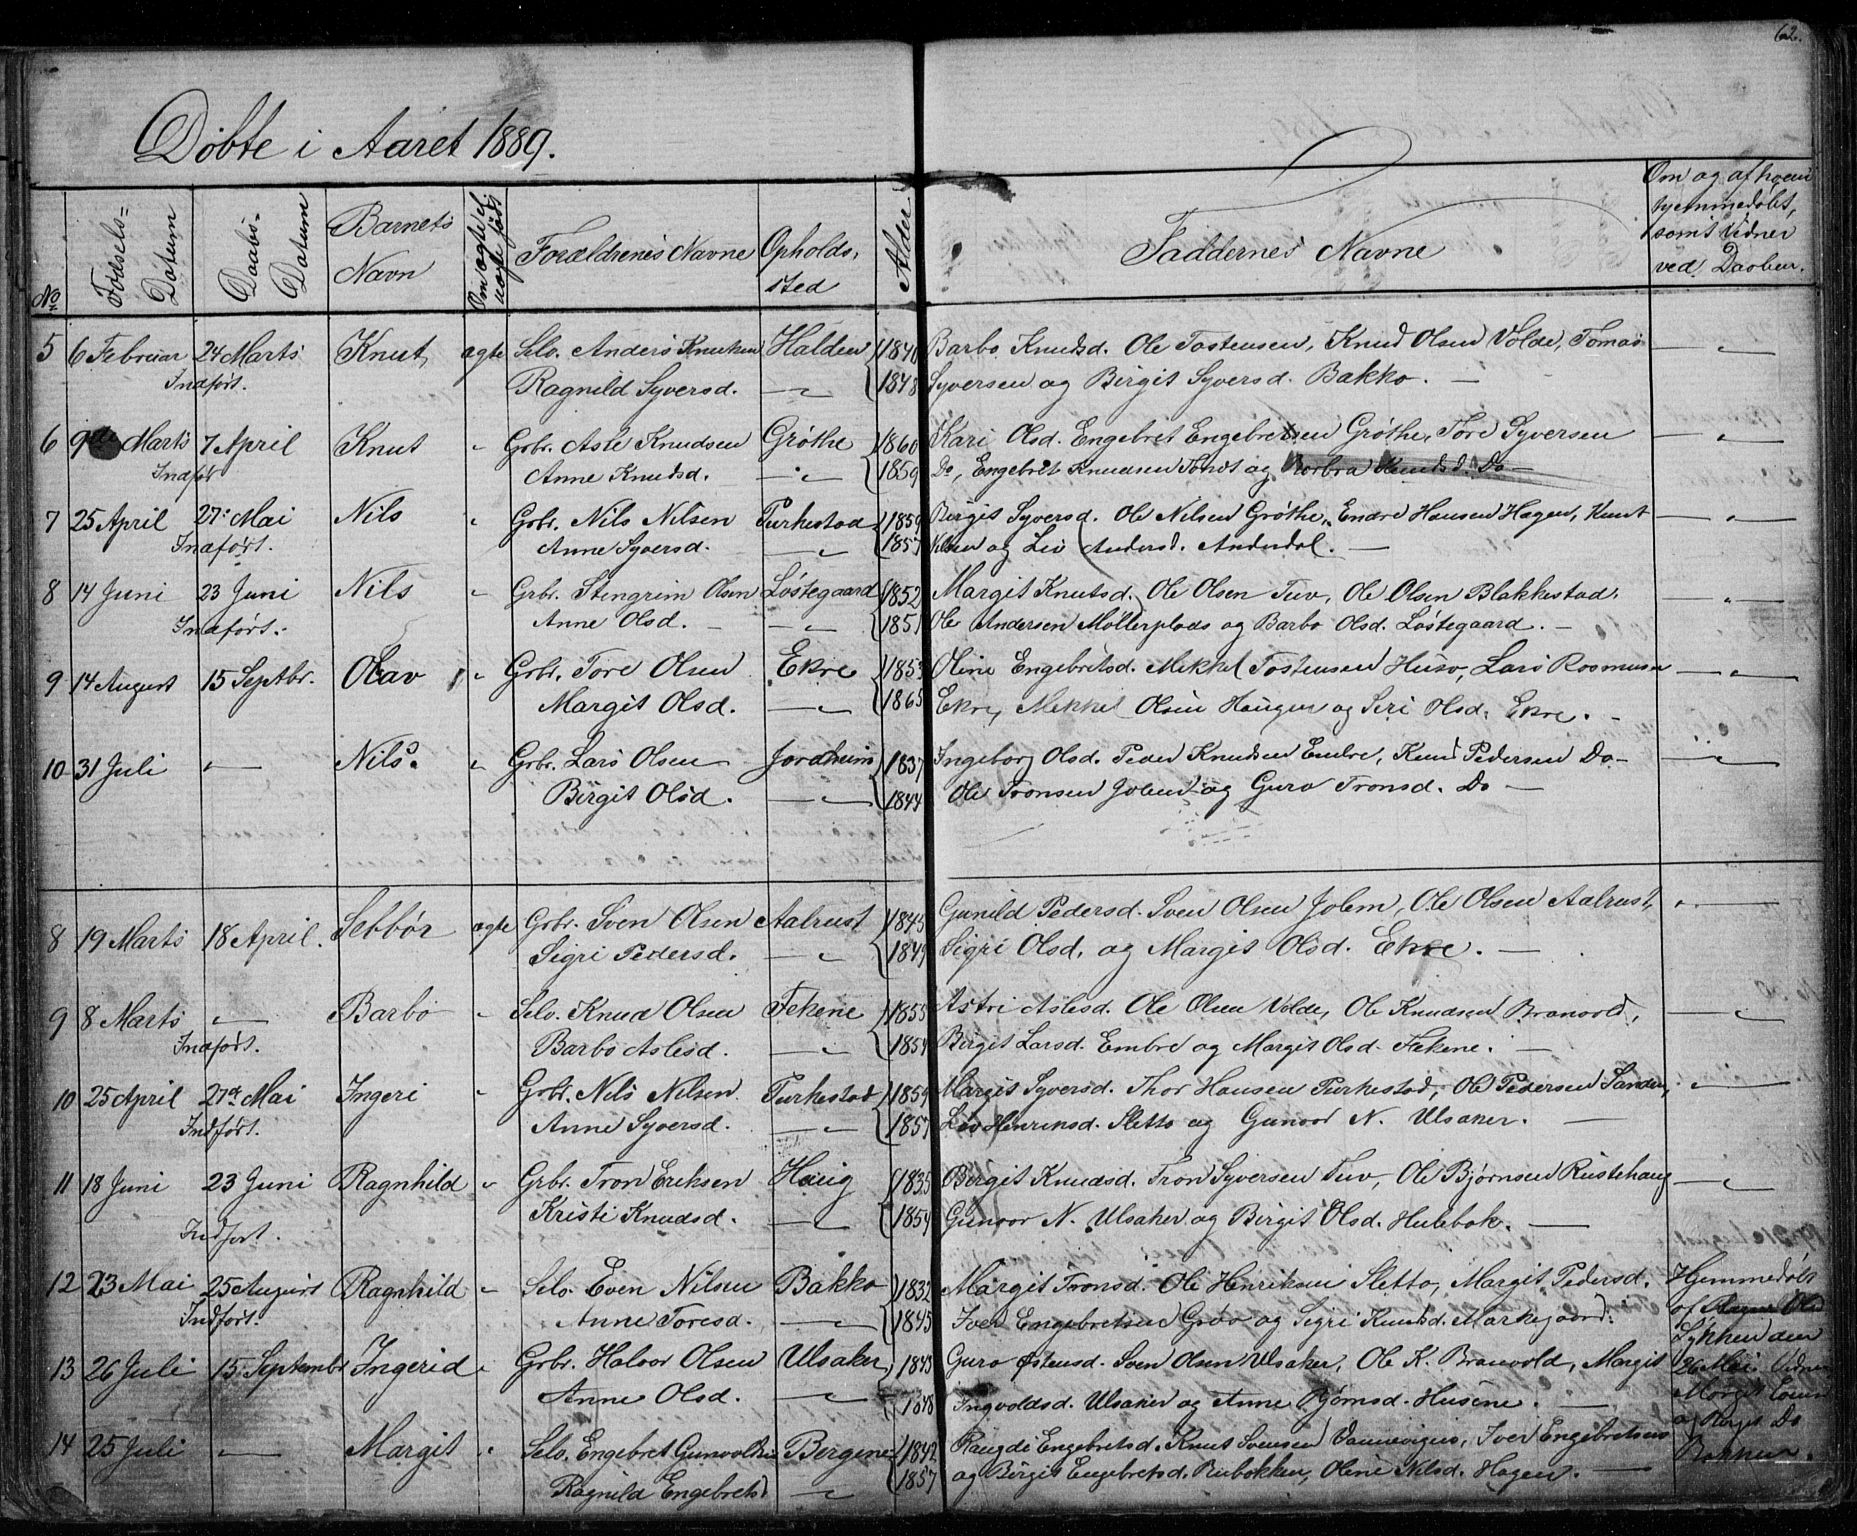 62.
Døbte i Aaret 1889.
No Fødsels= Datum Daabs- Datum Barnets Navn Om ægte l. uægte født Forældrenes Navne Opholds, sted Alder Faddernes Navne Om og af hvem hjemmedøbt, samt Vidner ved Daaben.
5 6 Februar 24 Marts Knut, ægte Selv. Anders Knutsen Halden 1840 Barbo Knudsd. Ole Tostensen, Knud Olsen Volde, Tomas
Indført. Ragnild Syversd. 1848 Syversen og Birgit Syversd. Bakko. —
6 9de Marts 7 April Knut " Grbr. Asle Knudsen Grøthe 1860 Kari Olsd. Engebret Engebretsen Grøthe, Tore Syversen
Indført Anne Knudsd. 1859 Do, Engebret Knudsen og Barbra Knudsd. Do —
7 25 April 27. Mai Nils " Grbr. Nils Nilsen Turkestad 1859 Birgit Syversd. Ole Nilsen Grøthe, Endre Hansen Hagen, Knut
Indført. Anne Syversd. 1857 Nilsen og Liv Andersd. Anderdal. —
8 14 Juni 23 Juni Nils " Grbr. Stengrim Olsen Løstegaard 1852 Margit Knutsd. Ole Olsen Tuv, Ole Olsen Blakkestad,
Indført. Anne Olsd. — 1851 Ole Andersen Møllerplads og Barbo Olsd. Løstegaard. —
9 14 August 15 Septbr. Olav " Grbr. Tore Olsen Ekre 1853 Oline Engebretsd. Mikkel Tostensen Huso, Lars Rasmusen
Margit Olsd. 1865 Ekre, Mekkel Olsen Haugen og Siri Olsd. Ekre. -
10 31 Juli " Nils. " Grbr. Lars Olsen Jordheim 1837 Ingeborg Olsd. Peder Knudsen Embre, Knud Pedersen Do —
Birgit Olsd. 1844 Ole Tronsen Jolem og Guro Tronsd. Do —
8 19 Marts 18 April. Sebbør ægte Grbr. Sven Olsen Aalrust 1845 Gunild Pedersd. Sven Olsen Jolem, Ole Olsen Aalrust,
Sigri Pedersd. 1849 Sigri Olsd. og Margit Olsd. Ekre. —
9 8 Marts " Barbo " Selv. Knud Olsen Fekene 1855 Astri Aslesd. Ole Olsen Volde, Ole Knudsen Branvold,
Indført. Barbo Aslesd. 1854 Birgit Larsd. Embre og Margit Olsd. Fekene. —
10 25 April 27de Mai Ingeri " Grbr. Nils Nilsen Turkestad 1859 Margit Syversd. Thor Hansen Turkestad, Ole Pedersen Sanden,
Indført. Anne Syversd. 1857 Liv Henriksd. Sletto og Gunvor N. Ulsaker. —
11 18 Juni 23 Juni Ragnhild " Grbr. Tron Eriksen Haug 1835 Birgit Knudsd. Tron Syversen Tuv, Ole Bjørnsen Rustehaug
Indført. Kristi Knudsd. 1854 Gunvor N. Ulsaker og Birgit Olsd. Hulebak. —
12 23 Mai 25 August Ragnhild " Selv. Even Nilsen Bakko 1832 Margit Tronsd. Ole Henriksen Sletto, Margit Pedersd. Hjemmedøbt
Indført. Anne Toresd. 1845 Iver Engebretsen Grøv og Sigri Knudsd. Markegaard. af
13 26 Juli 15. Septembr Ingerid " Grbr. Halvor Olsen Ulsaker 1843 Guro Østensd. Sven Olsen Ulsaker, Ole K. Branvold, Margit Lykken den 26 Mai. Vidner
Anne Olsd. 1848 Ingvoldsd. Ulsaker og Anne Bjørnsd. Husene. — Margit
14 25 Juli " Margit " Selv. Engebret Gunvoldsen Bergene 1842 Raugdi Engebretsd. Knut Svensen Iver Engebretsen og Birgit Do
Ragnild Engebretsd 1857 og Birgit Engebretsd. Rubokken, Oline Nilsd. Hagen. — Bakken.